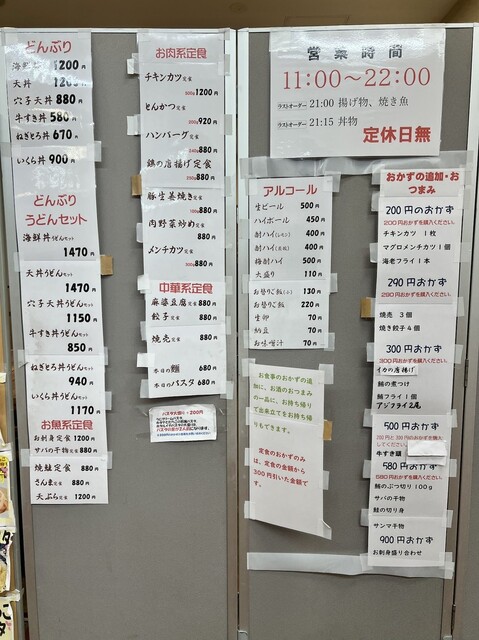 どんぶり
海鮮丼 1200円
天丼 1200円
穴子天丼 880円
牛すき丼 580円
ねぎとろ丼 670円
いくら丼 900円
どんぶり
うどんセット
海鮮丼うどんセット
1470円
天丼うどんセット
1470円
穴子天丼うどんセット
1150円
牛すき丼うどんセット
850円
ねぎとろ丼うどんセット
940円
いくら丼うどんセット
1170円
お魚系定食
お刺身定食 1200円
サバの干物定食 880円
焼鮭定食 880円
さんま定食 880円
天ぷら定食 1200円
お肉系定食
チキンカツ定食
500g 1200円
とんかつ定食
300g 920円
ハンバーグ定食
240g 880円
鶏の唐揚げ定食
250g 880円
豚生姜焼き定食
880円
肉野菜炒め定食
880円
メンチカツ定食
300g 880円
中華系定食
麻婆豆腐定食 880円
餃子定食 880円
焼売定食 880円
本日の麺 680円
本日のパスタ 680円
パスタ大盛り+200円
営業時間
11:00〜22:00
ラストオーダー 21:00 揚げ物、焼き魚
ラストオーダー 21:15 丼物
定休日無
アルコール
生ビール 500円
ハイボール 450円
酎ハイ(レモン) 400円
酎ハイ 400円
梅酎ハイ 500円
大盛り 110円
お替りご飯 130円
お替りご飯 220円
生卵 70円
納豆 70円
お味噌汁 70円
お食事のおかずの追
加に、お酒のおつまみ
の一品に、お持ち帰り
で出来立てをお持ち帰
りもできます。
定食のおかずのみ
は、定食の金額から
300円引いた金額です。
おかずの追加・お
つまみ
200円のおかず
200円おかずを購入ください。
チキンカツ 1枚
マグロメンチカツ1個
海老フライ1本
290円おかず
290円おかずを購入ください。
焼売 3個
焼き餃子4個
300円おかず
300円おかずを購入ください。
イカの唐揚げ
鯖の煮つけ
鯵フライ1個
アジフライ2尾
500円おかず
200円と300円のおかずを購入
してください。
牛すき頭
580円おかず
580円おかずを購入ください。
鮪のぶつ切り100g
サバの干物
鮭の切り身
サンマ干物
900円おかず
お刺身盛り合わせ